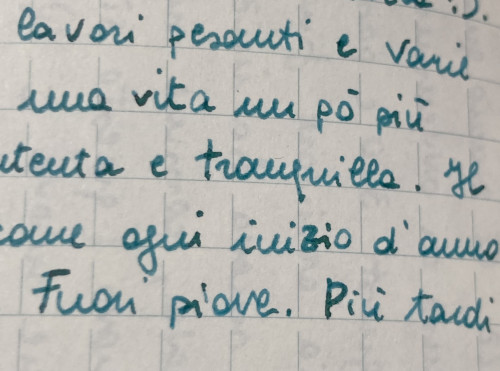 lavori pesanti e varie
una vita un pō più
tenta e tranquilla. Il
come ogni inizio d'anno
Fuori piove. Più tardi